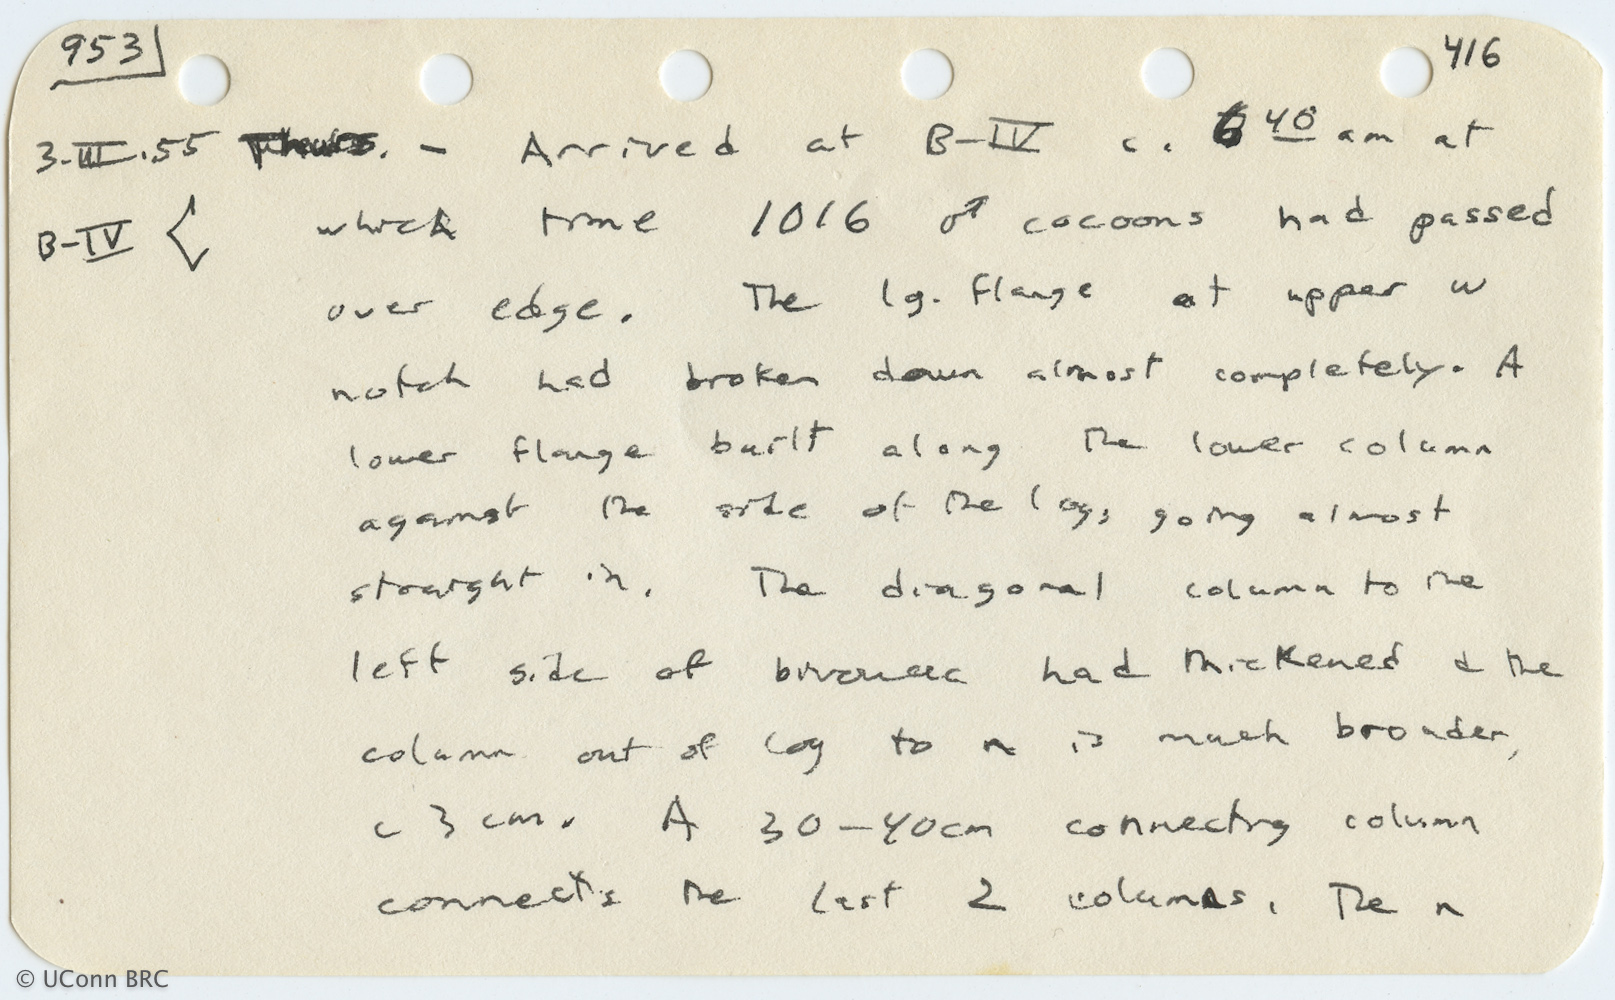 953 416
3-III.55 Thurs. - Arrived at B-IV c. 6 40 am at
B-IV < which time 1016 ♂ cocoons had passed
over edge. The lg. flange at upper w
notch had broken down almost completely. A
lower flange built along the lower column
against the side of the log, going almost
straight in. The diagonal column to the
left side of bivouac had thickened & the
column out of log to n is much broader,
c 3 cm. A 30-40cm connecting column
connects the last 2 columns. The n
© UConn BRC